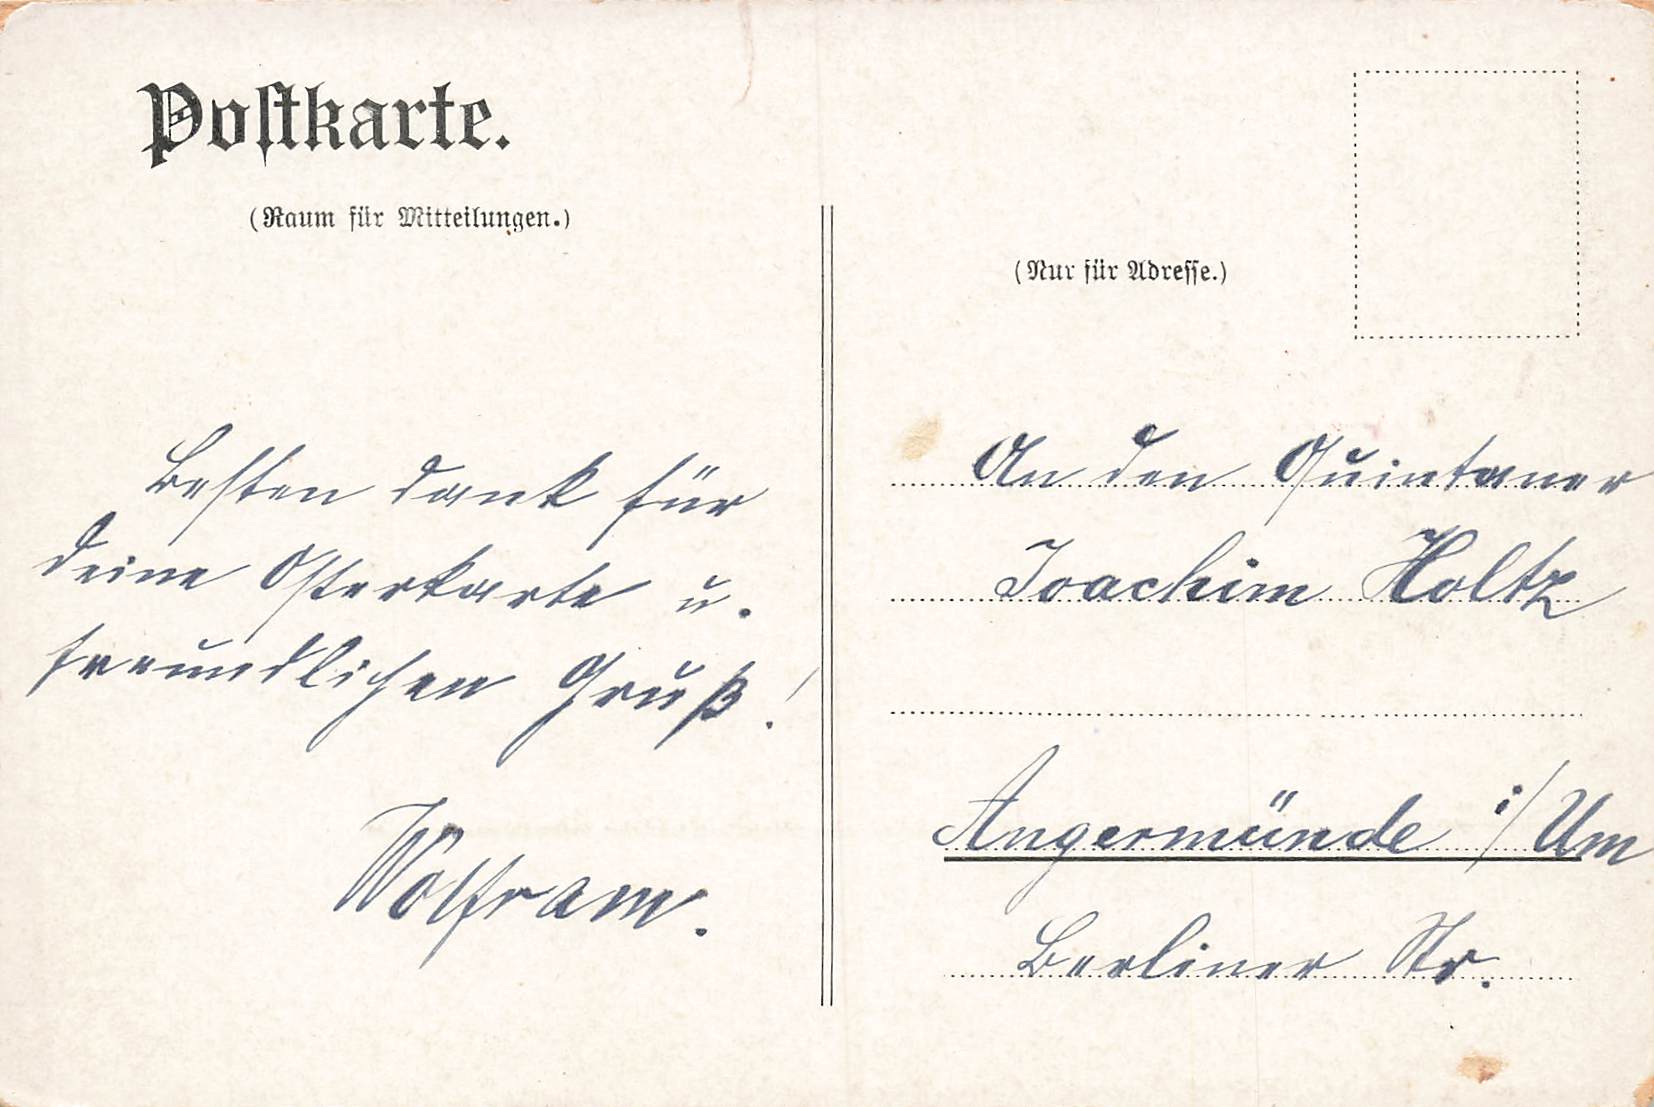 Postkarte.
(Raum für Mitteilungen.)
Besten Dank für
deine Osterkarte u.
freundlichen Gruß!
Wolfram.
(Nur für Adresse.)
An den Quintaner
Joachim Holtz
Angermünde i/Um
Berliner Str.